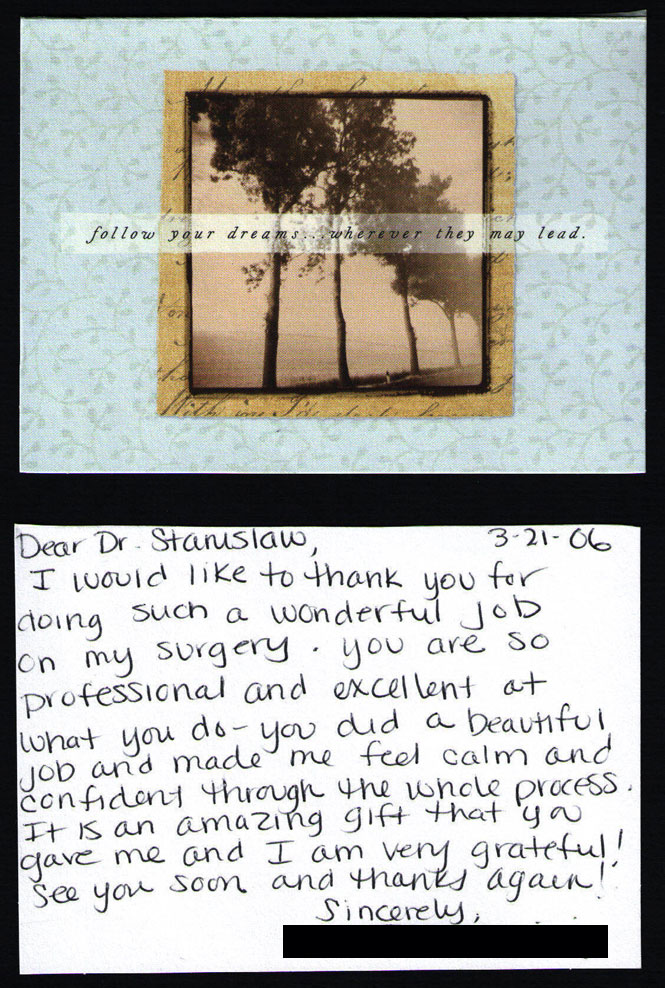 follow your dreams...wherever they may lead.
Dear Dr. Stanislaw,
3-21-06
I would like to thank you for
doing such a wonderful job
on my surgery. you are so
professional and excellent at
what you do- you did a beautiful
job and made me feel calm and
confident through the whole process.
It is an amazing gift that you
gave me and I am very grateful!
See you soon and thanks again!
Sincerely,